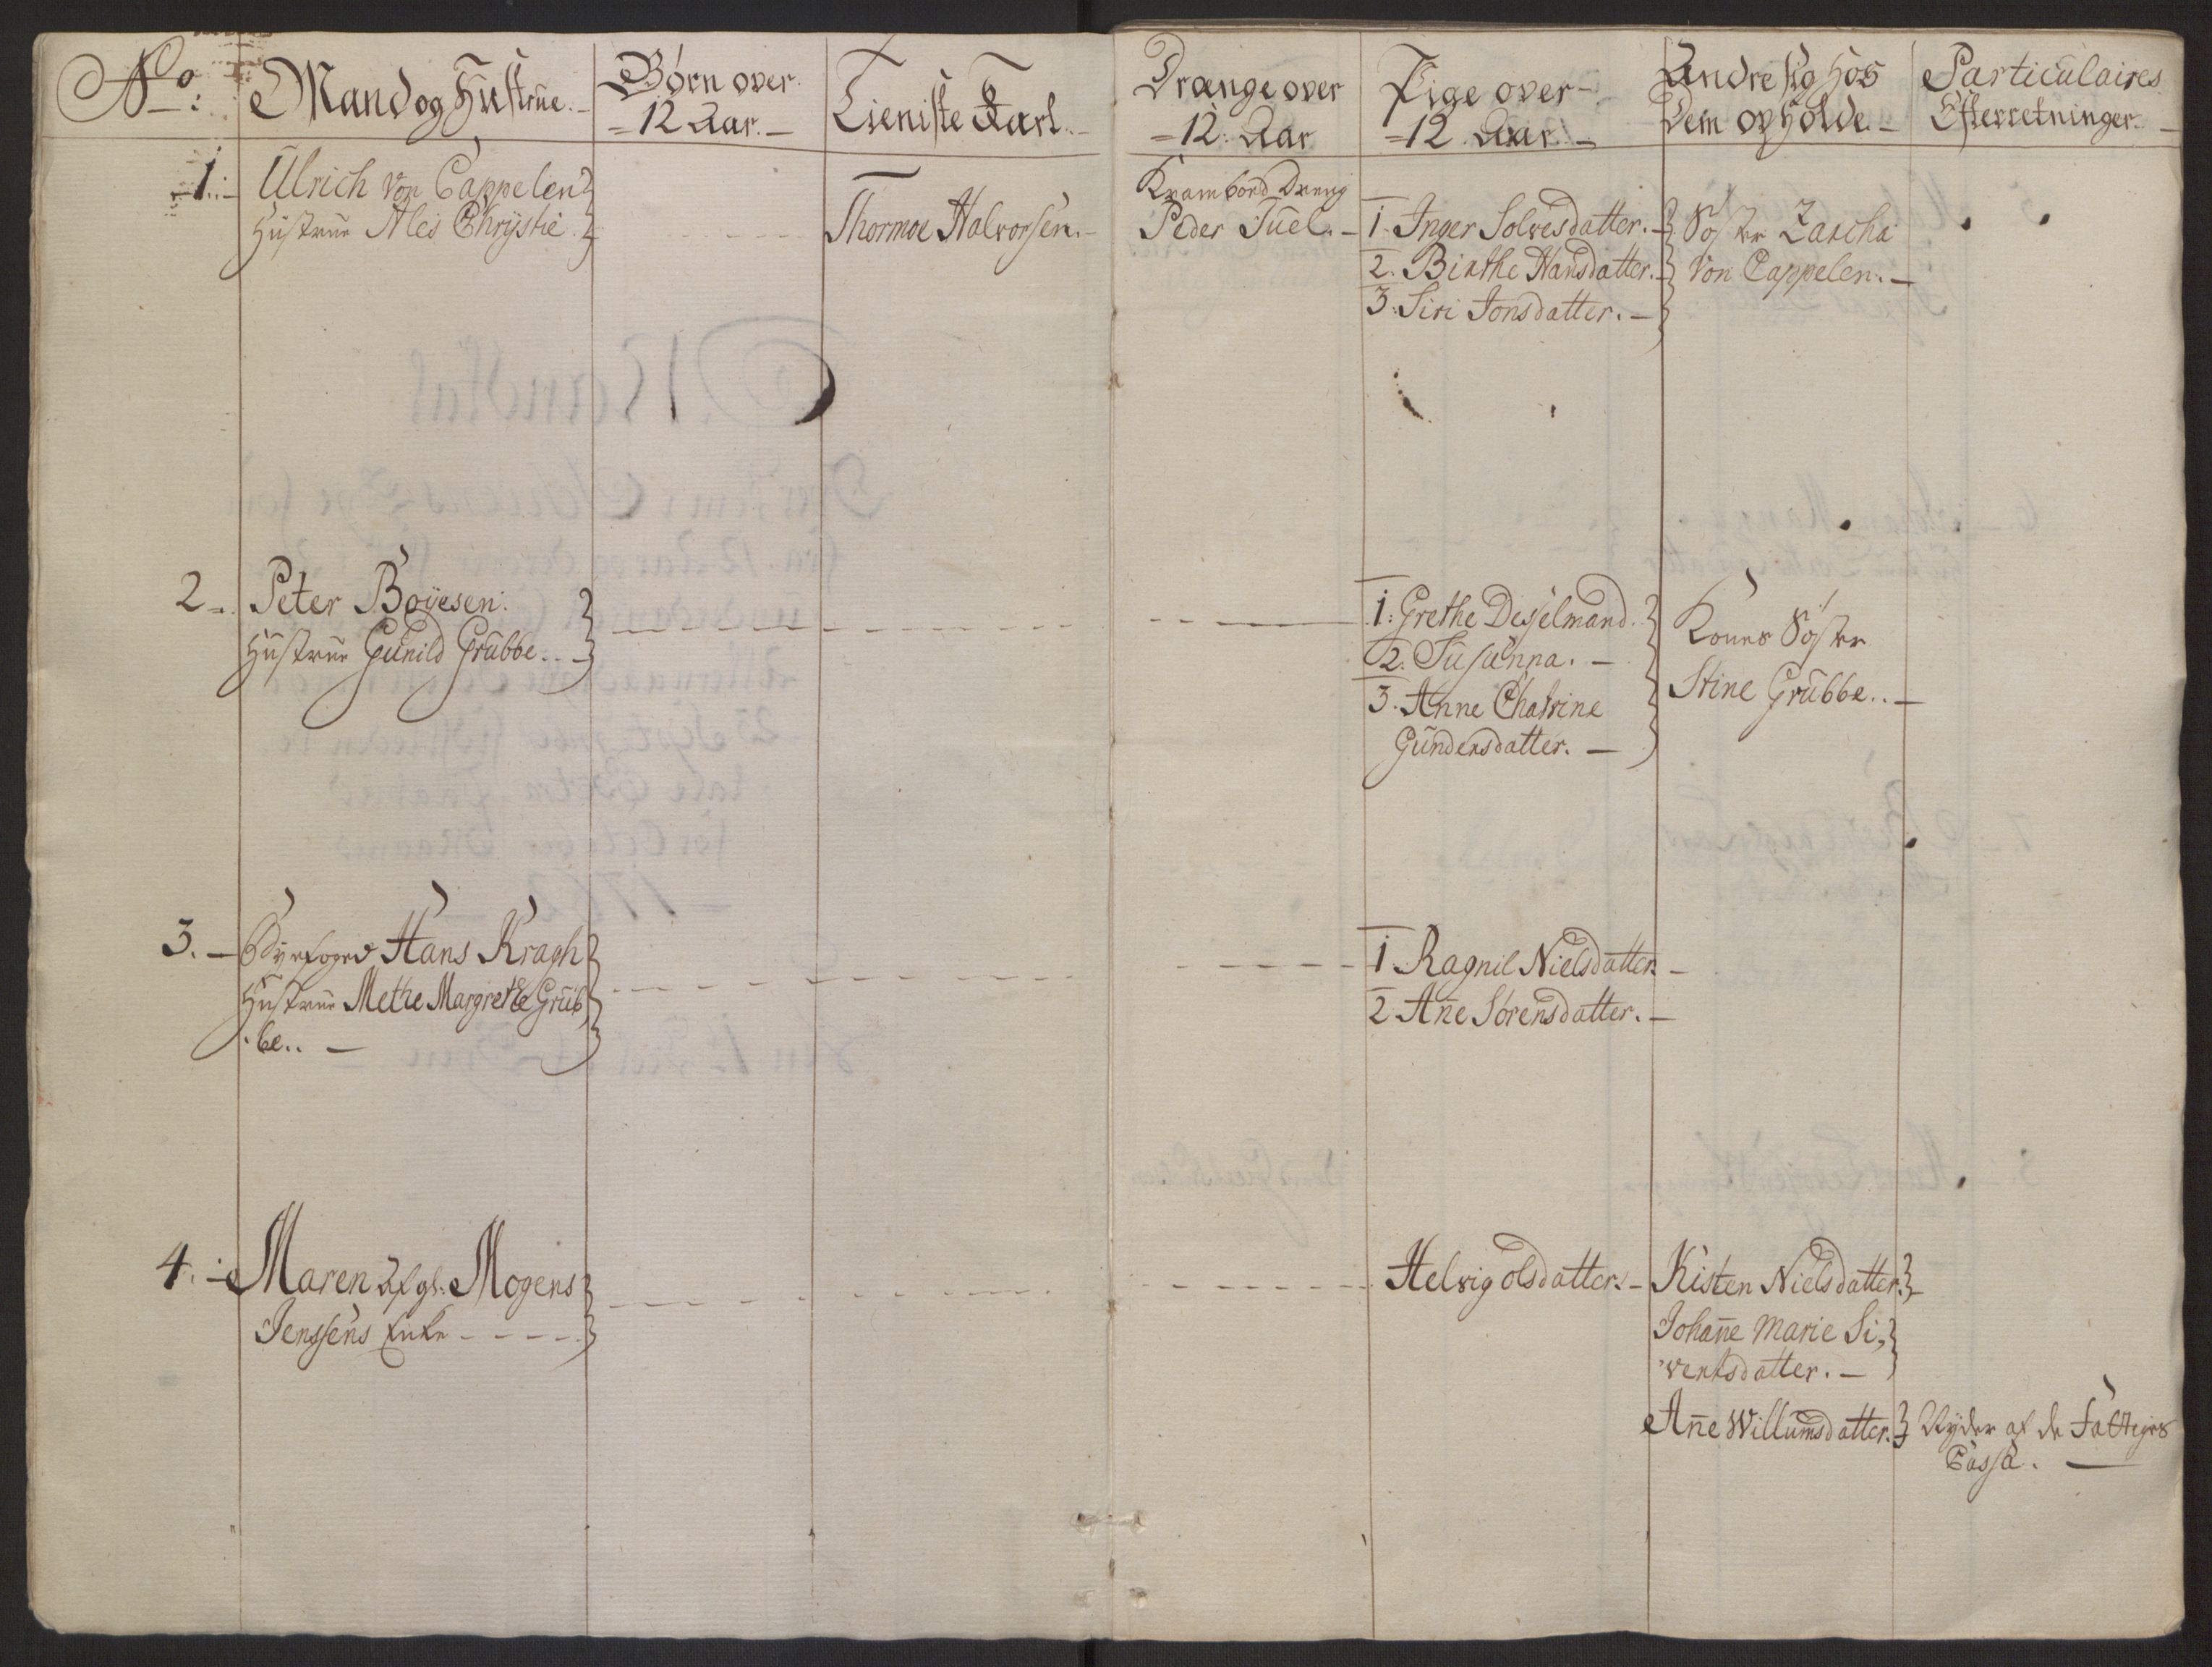 No:
Mand og Hustrue.
Børn over
= 12 Aar. —
Tieniste Karl.
Drænge over
= 12: Aar
Pige over
= 12 Aar. —
Andre sig hos
Dem opholde. —
Particulaires
Efterretninger. —
1. Ulrich von Cappelen
Hustrue Ales Chrystie
Thormoe Halvorsen. —
Krambod Dreng
Peder Juel. —
1. Inger Solvesdatter. —
2. Birthe Hansdatter. —
3. Siri Jonsdatter. —
Søster Zascha
von Cappelen. —
2. Peter Boyesen.
Hustrue Gunild Grubbe. . —
1: Grethe Desselmand.
2. Susanna. —
3. Anne Chatrine
Gundersdatter. —
Kones Søster
Stine Grubbe. . —
3. — Byefoged Hans Kragh
Hustrue Methe Margrethe Grub,
,be. . —
1 Ragnil Nielsdatter. —
2 Añe Sørensdatter. —
4. Maren Afgl. Mogens
Jenssens Enke - - - -
Helvig olsdatter. —
Kisten Nielsdatter. —
Johañe Marie Si,
,vertsdatter. —
Añe Willumsdatter.
Nyder af de Fattiges
Cassa. —